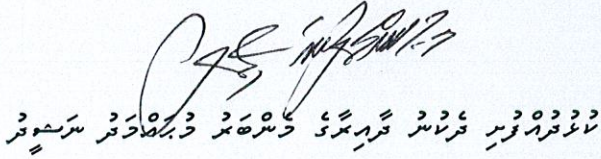 ކުޅުދުއްފުށި ދެކުނު ދާއިރާގެ މެންބަރު މުޙައްމަދު ނަޝީދު